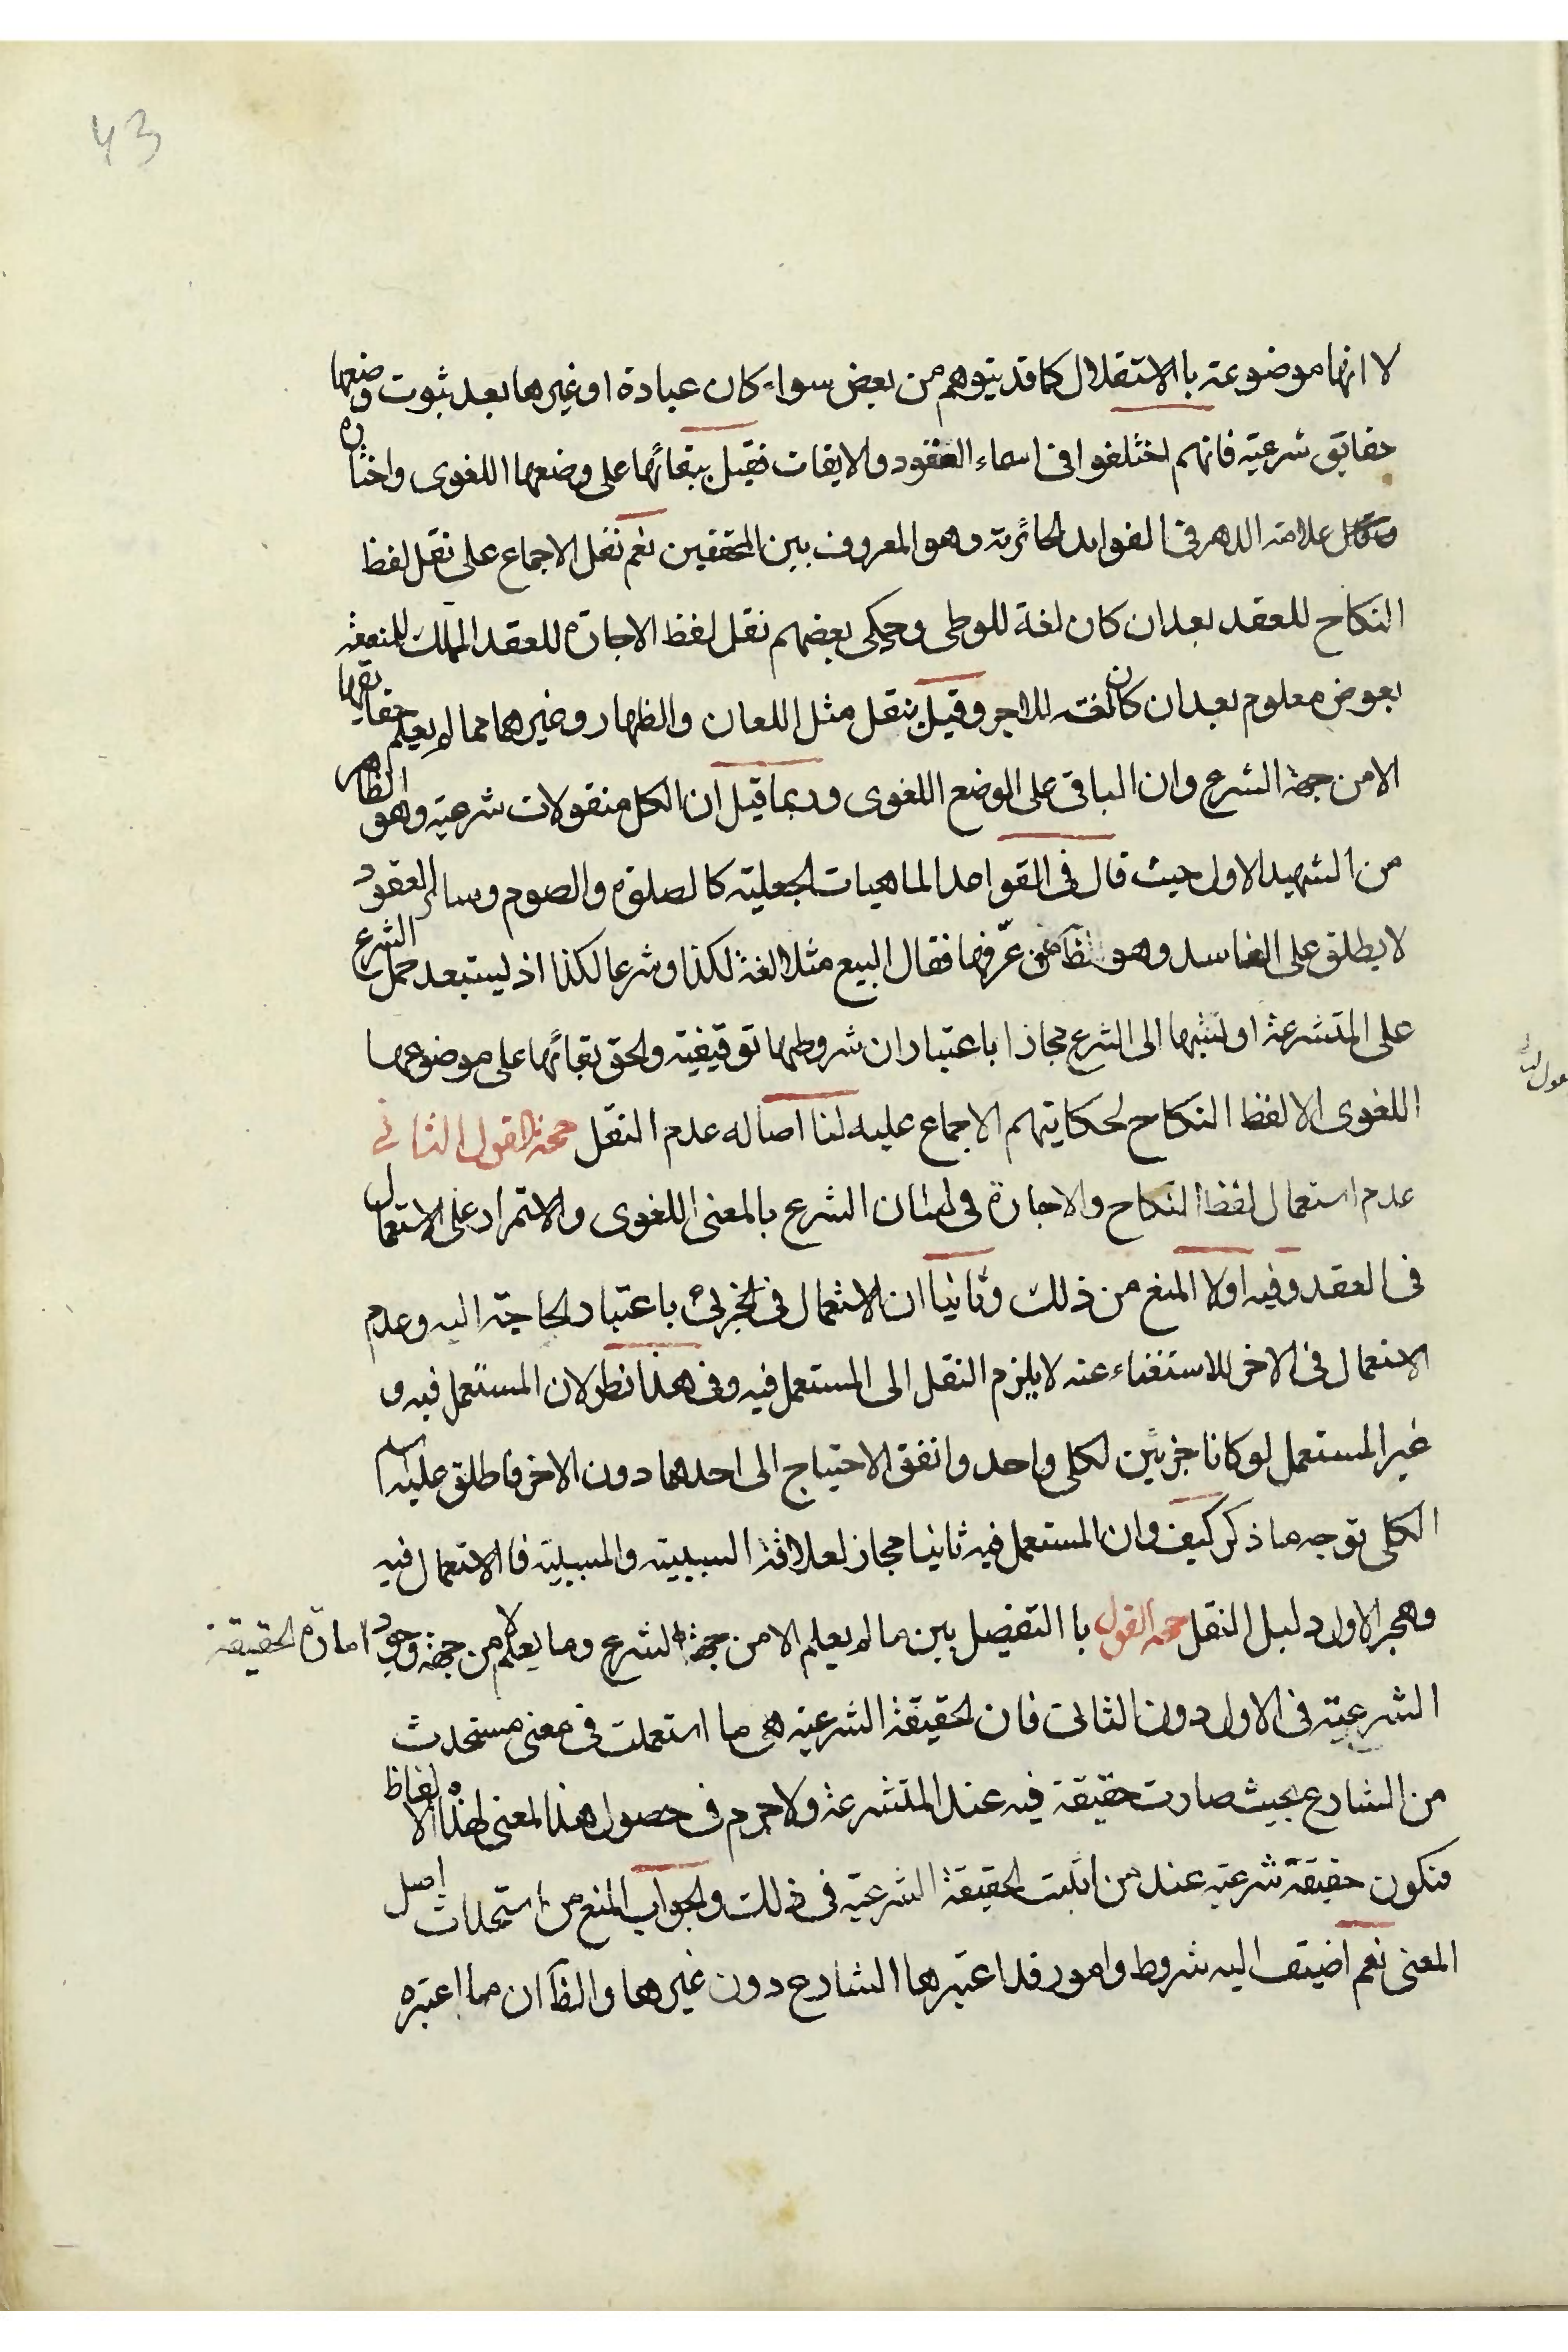 43
لا انها موضوعة با الاستقلال كما قد يتوهم من بعض سواء كان عبادة او غيرها بعد ثبوت وضعها
حقايق شرعية فانهم اختلفوا فى اسماء العقود والايقات فقيل ببقائها على وضعها اللغوى واختاره
علامة الدهر فى الفوايد الحائرية وهو المعروف بين المحققين نعم نقل الاجماع على نقل لفظ
النكاح للعقد بعد ان كان لغة للوطى وحكى بعضهم نقل لفظ الاجارة للعقد المملك للمنفعة
بعوض معلوم بعد ان كان لغة للاجر وقيل بنقل مثل اللعان والظهار وغيرهما مما لم يعلم حقايقها
الا من جهة الشرع وان الباقى على الوضع اللغوى وربما قيل ان الكل منقولات شرعية وهو الظاهر
من الشهيد الاول حيث قال فى القواعد الماهيات الجعلية كالصلوة والصوم وسائر العقود
لا يطلق على الفاسد وهو ظآ من عرّفها فقال البيع مثلا لغة لكذا وشرعا لكذا اذ يستبعد حمل الشرع
على المتشرعة او نسبتها الى الشرع مجازا باعتبار ان شروطها توقيفية والحق بقائها على موضوعها
اللغوى الا لفظ النكاح لحكايتهم الاجماع عليه لنا اصاله عدم النقل حجة القول الثانى
عدم استعمال لفظ النكاح والاجارة فى لسان الشرع بالمعنى اللغوى والاستمرار على الاستعمال
فى العقد وفيه اولا المنع من ذلك وثانيا ان الاستعمال فى الجزئى باعتبار الحاجة اليه وعدم
الاستعمال فى الاخر للاستغناء عنه لا يلزم النقل الى المستعمل فيه وفى هذا نظر لان المستعمل فيه و
غير المستعمل لو كانا جزئين لكلى واحد واتفق الاحتياج الى احدهما دون الاخر فاطلق عليه
الكلى توجه ما ذكر كيف وان المستعمل فيه ثانيا مجاز لعلاقة السببية والمسببية فا الاستعمال فيه
وهجر الاول دليل النقل حجة القول با التفصيل بين ما لم يعلم الا من جهة الشرع وما يعلم لا من جهة وجود امارة الحقيقة
الشرعية فى الاول دون الثانى فان الحقيقة الشرعية هى ما استعملت فى معنى مستحدث
من الشارع بحيث صارت حقيقة فيه عند المتشرعة ولا جرم فى حصول هذا المعنى لهذه الالفاظ
فتكون حقيقة شرعية عند من اثبت الحقيقة الشرعية فى ذلك والجواب المنع من استحداث اصل
المعنى نعم اضيف اليه شروط وامور قد اعتبرها الشارع دون غيرها والظآ ان ما اعتبره